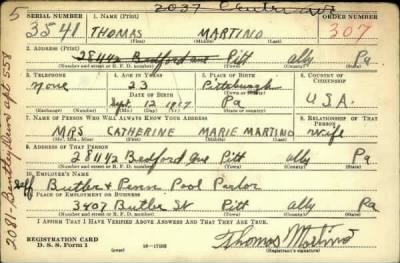 5
2037 Centre ave
SERIAL NUMBER 1. NAME (Print) ORDER NUMBER
3541 THOMAS MARTINO 307
(First) (Middle) (Last)
2. ADDRESS (Print)
2811½ Bedford ave Pitt ally Pa
(Number and street or R. F. D. number) (Town) (County) (State)
3. TELEPHONE 4. AGE IN YEARS 5. PLACE OF BIRTH 6. COUNTRY OF CITIZENSHIP
None 23 Pittsburgh
DATE OF BIRTH (Town or county)
Sept. 12 1917 Pa U.S.A.
(Mo.) (Day) (Yr.) (State or country)
7. NAME OF PERSON WHO WILL ALWAYS KNOW YOUR ADDRESS 8. RELATIONSHIP OF THAT PERSON
MRS CATHERINE MARIE MARTINO Wife
(Mr., Mrs., Miss) (First) (Middle) (Last)
9. ADDRESS OF THAT PERSON
2811½ Bedford Ave Pitt ally Pa
(Number and street or R. F. D. number) (Town) (County) (State)
10. EMPLOYER'S NAME
Self Butler & Penn Pool Parlor
11. PLACE OF EMPLOYMENT OR BUSINESS
3407 Butler St Pitt ally Pa
(Number and street or R. F. D. number) (Town) (County) (State)
I AFFIRM THAT I HAVE VERIFIED ABOVE ANSWERS AND THAT THEY ARE TRUE.
REGISTRATION CARD
D. S. S. Form 1 (over) 16—17105
Thomas Martino
(Registrant's signature)
2081- Bentley Drive apt 558